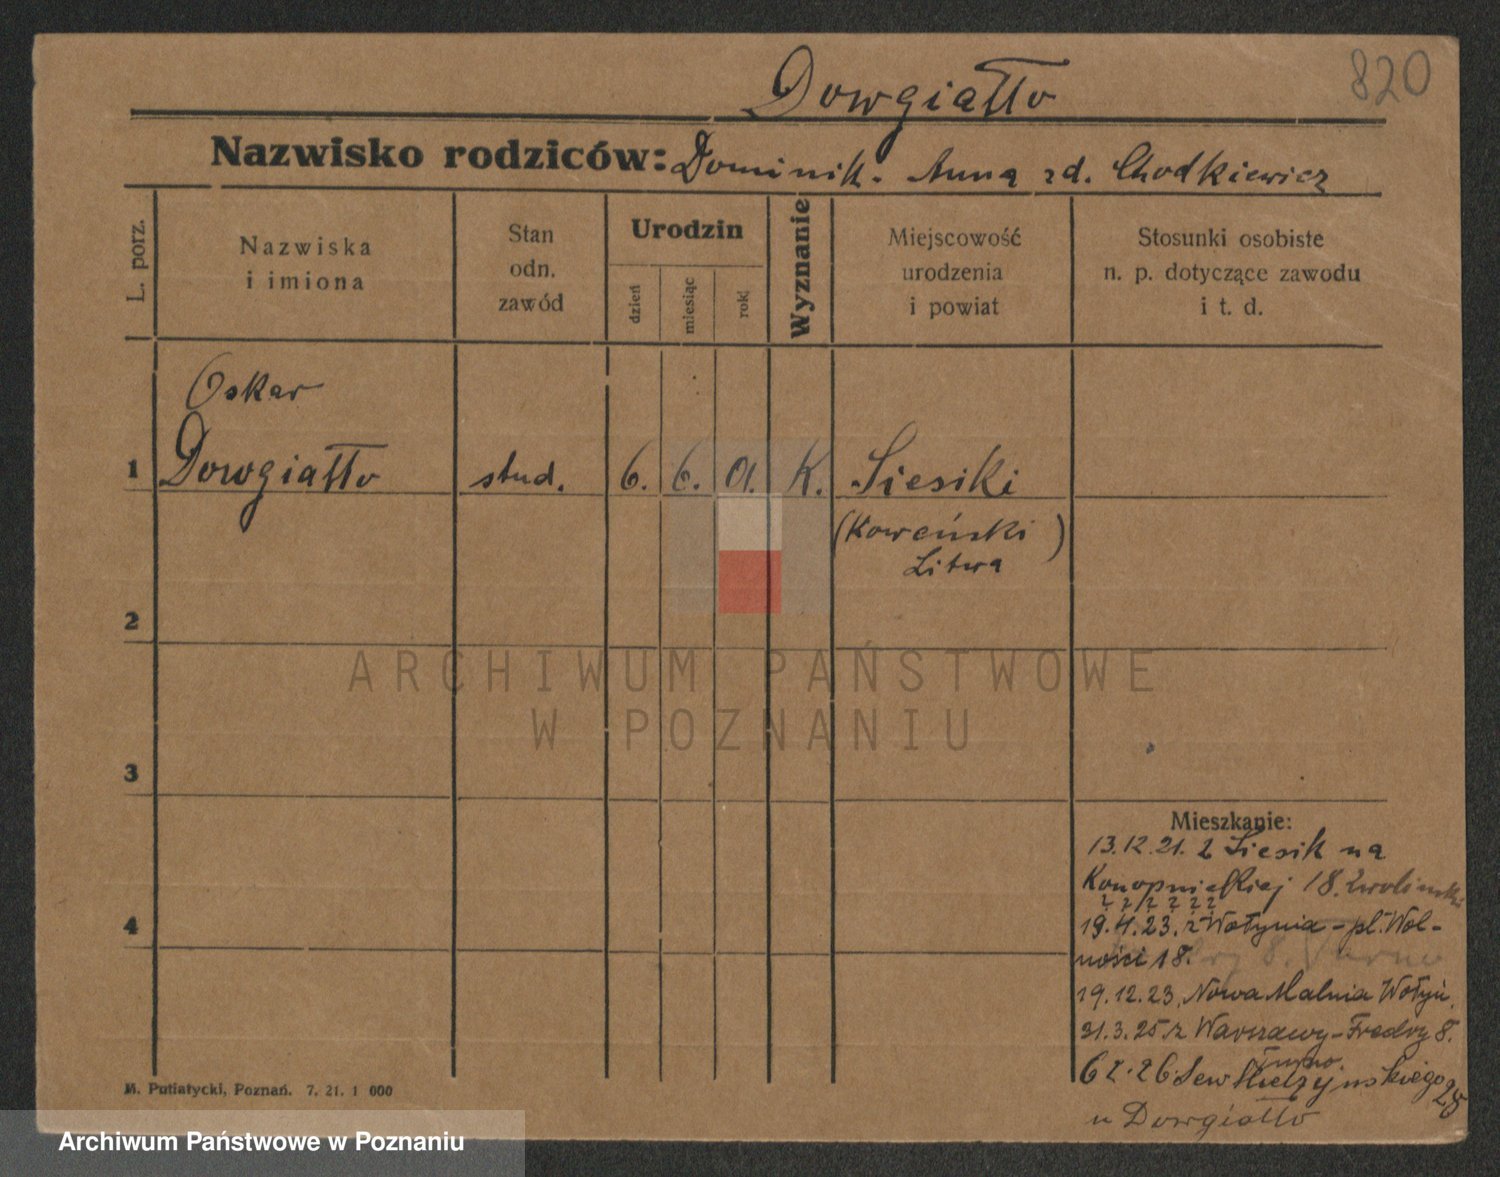 820
Dowgiałło
Nazwisko rodziców: Dominik. Anna zd. Chodkiewicz
L. porz.
Nazwiska
i imiona
Stan
odn.
zawód
Urodzin
dzień
miesiąc
rok
Wyznanie
Miejscowość
urodzenia
i powiat
Stosunki osobiste
n. p. dotyczące zawodu
i t. d.
Oskar
1 Dowgiałło stud. 6. 6. 01. K. Siesiki
(Kowieński)
Litwa
2
3
4
Mieszkanie:
13.12.21. z Siesik na
Konopnickiej 18.
19.4.23. z Wołynia - pl. Wol-
ności 18.
19.12.23. Nowa Malnia Wołyń.
31.3.25 z Warszawy - Fredry 8.
62.26 Sew Mielżyńskiego 25
u Dowgiałło
M. Putiatycki, Poznań. 7. 21. 1 000
ARCHIWUM PAŃSTWOWE
W POZNANIU
Archiwum Państwowe w Poznaniu